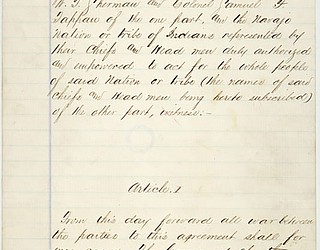 W. T. Sherman and Colonel Samuel F.
Tappan of the one part, and the Navajo
Nation or tribe of Indians represented by
their Chiefs and Head men duly authorized
and empowered to act for the whole people
of said Nation or tribe (the names of said
Chiefs and Head men being hereto subscribed)
of the other part, witness:—
Article. 1
From this day forward all war between
the parties to this agreement shall for